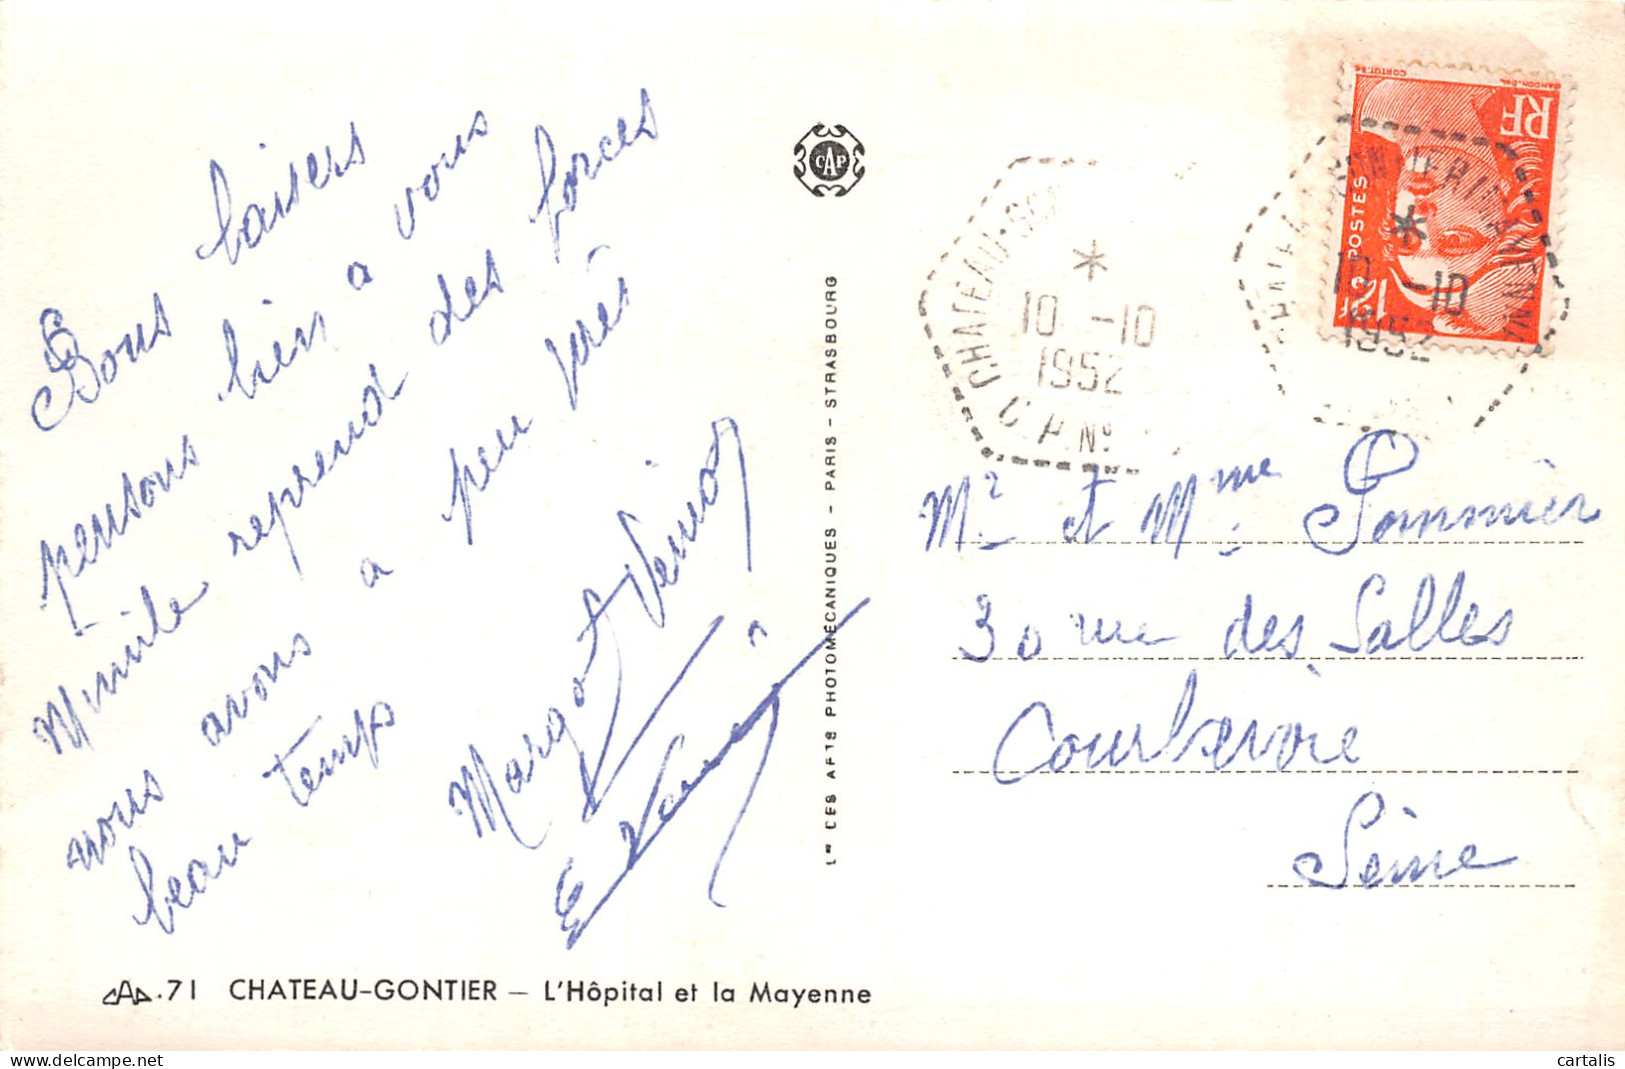 Bons baisers
pensons bien a vous
Mimile reprend des forces
nous avons a peu près
beau temps
Margot
E
CAP
Les DES ARTS PHOTOMÉCANIQUES - PARIS - STRASBOURG
CAP.71 CHATEAU-GONTIER — L'Hôpital et la Mayenne
CHATEAU-GON
*
10 -10
1952
C.P. No
RF
POSTES
*
10 -10
1952
Mr et Mme Pommier
30 rue des Salles
Courbevoie
Seine
cartalis